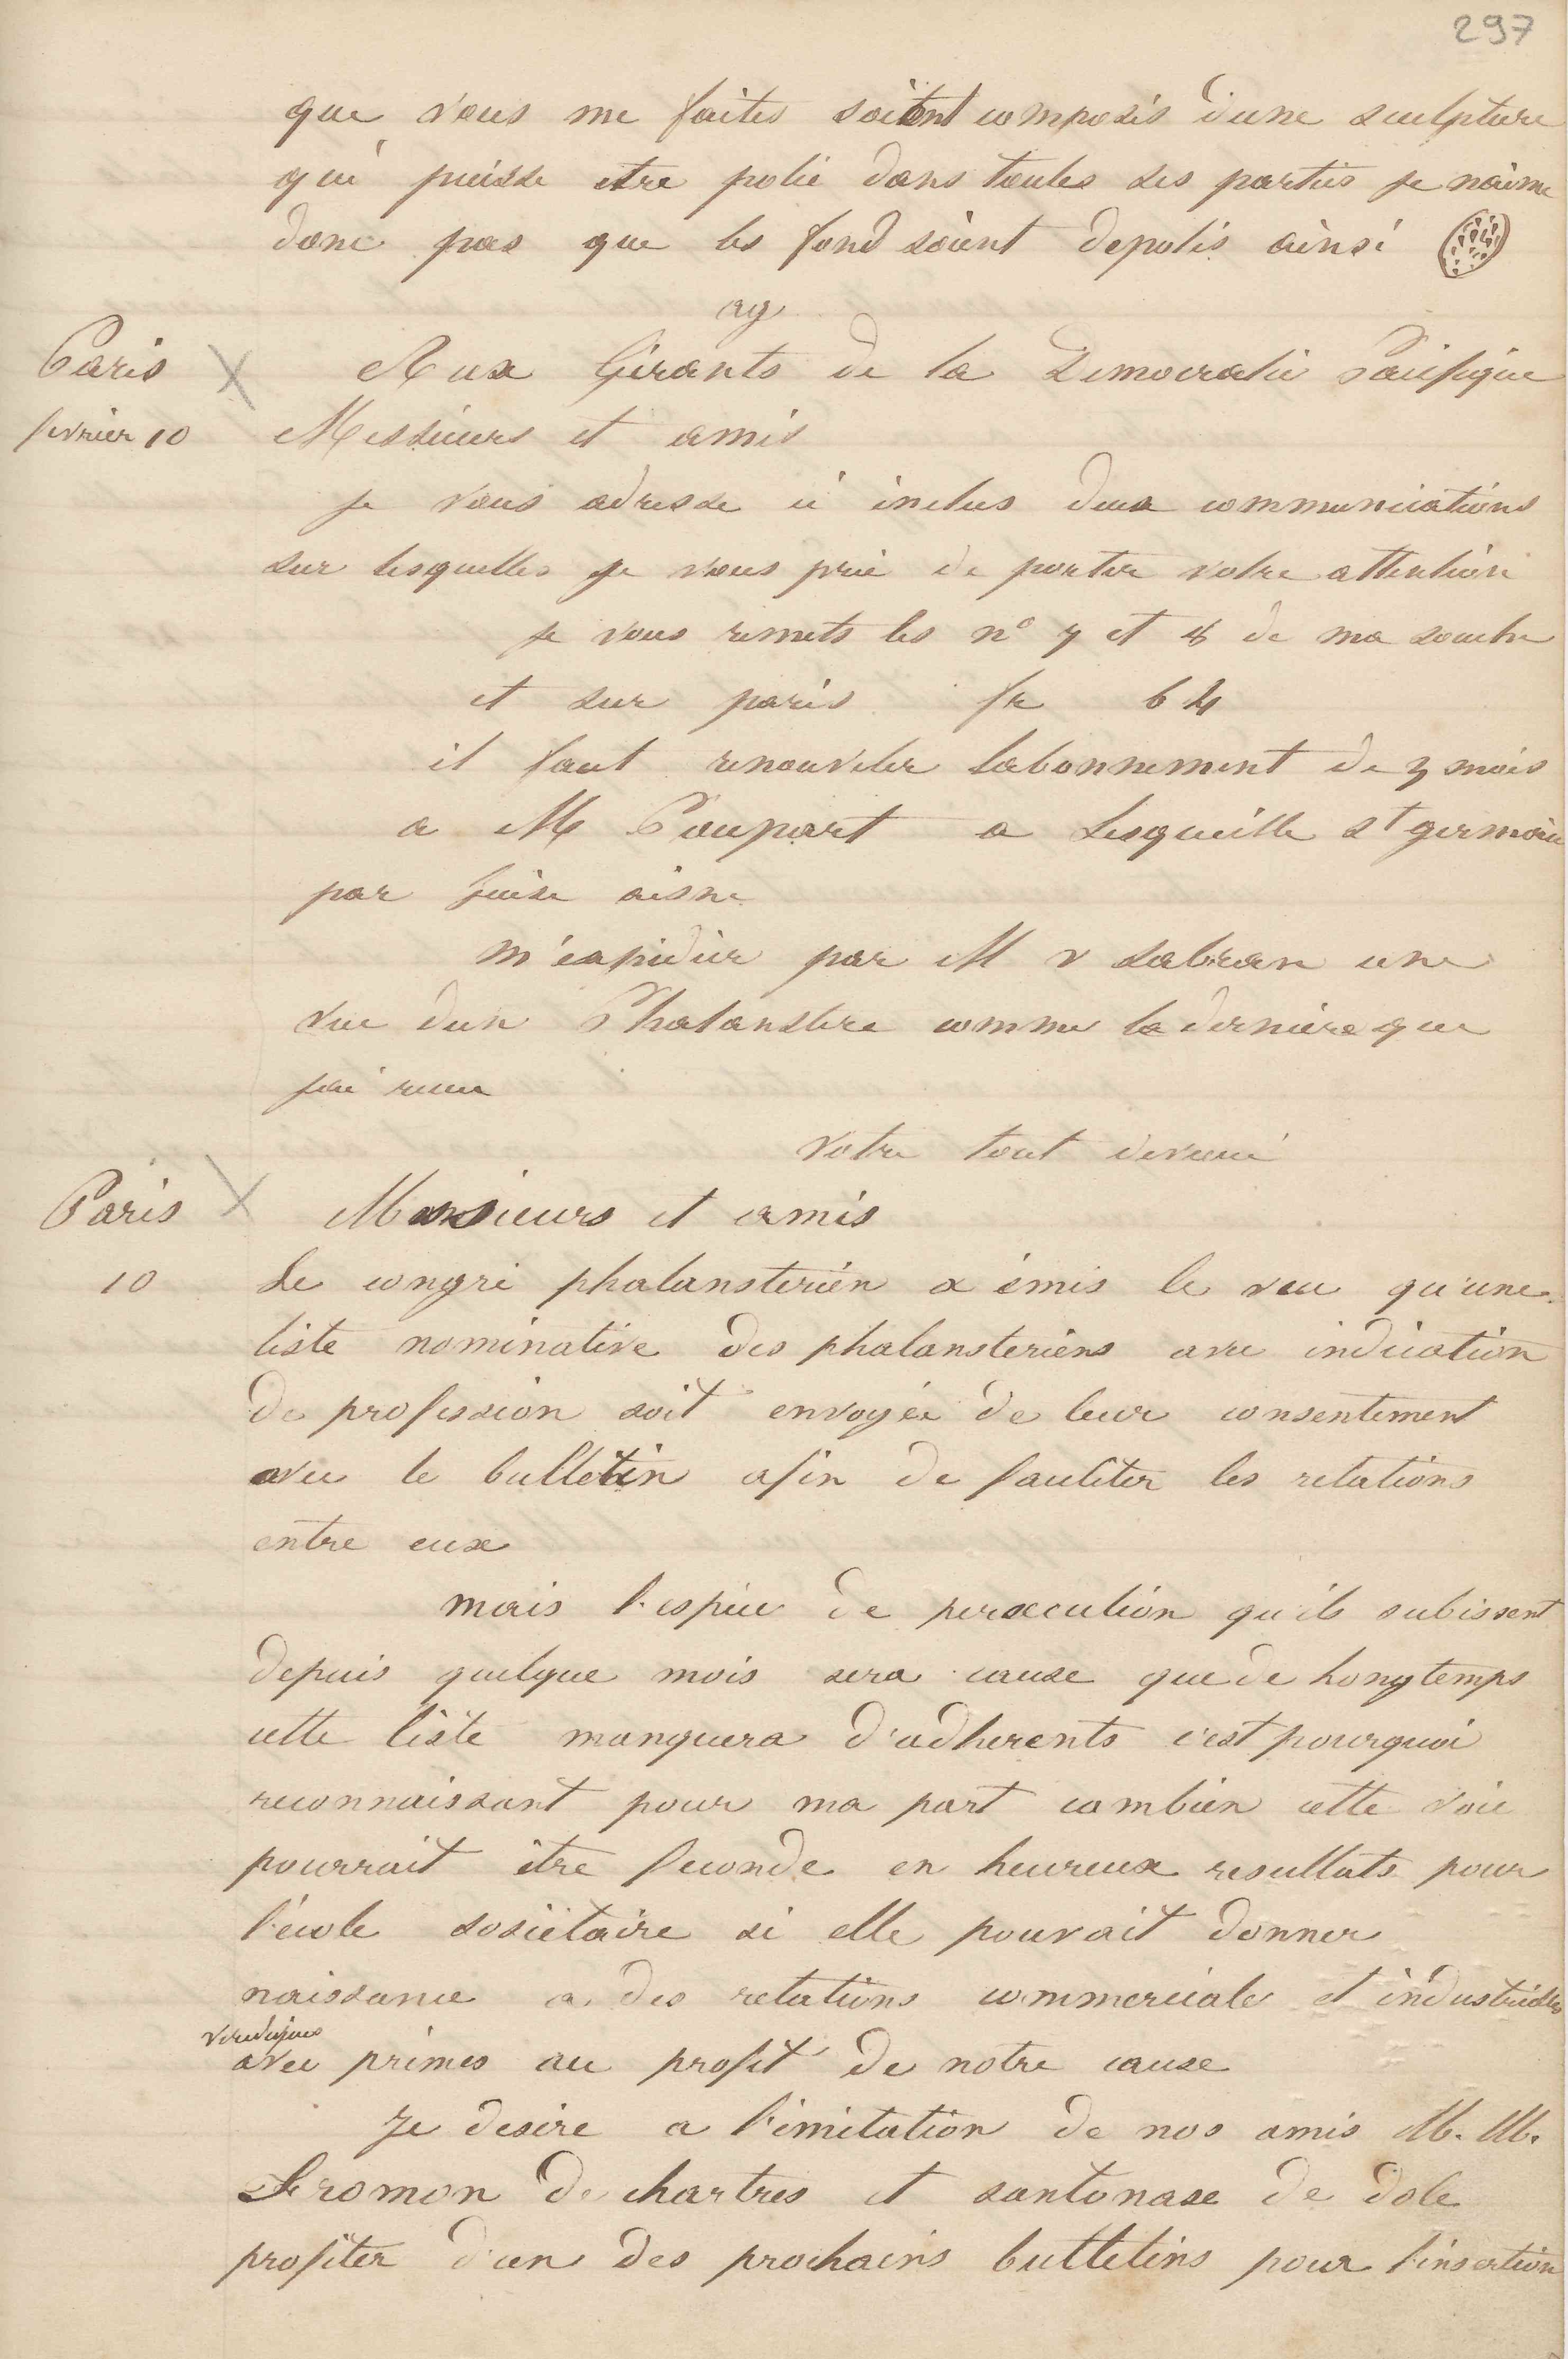 297
que vous me faites soient composés d'une sculpture
qui puisse etre polie dans toutes ses parties je naime
donc pas que les fond soient depolis ainsi
ag
Paris
fevrier 10
Aux Gérants de la Democratie Pacifique
Messieurs et amis
je vous adresse ci inclus deux communications
sur lesquelles je vous prie de porter votre attention
je vous remets les n° 7 et 8 de ma souche
et sur paris fr 64
il faut renouveler labonnement de 3 mois
a M Poupart a Lesquielle st germain
par Guise aisne
m'expédier par M v Sabran une
vue dun Phalanstere comme la derniere que
jai recue
Votre tout devoué
Paris
10
Messieurs et amis
Le congré phalansterien a émis le veu qu'une
liste nominative des phalansteriens avec indication
de profession soit envoyée de leur consentement
avec le bulletin afin de faciliter les relations
entre eux
mais l'espèce de persecution qu'ils subissent
depuis quelque mois sera cause que de longtemps
cette liste manquera d'adherents c'est pourquoi
reconnaissant pour ma part combien cette voie
pourrait être feconde en heureux resultats pour
l'école sosiétaire si elle pouvait donner
naissance a des relations commerciale et industrielles
veridiques
avec primes au profit de notre cause
Je desire a l'imitation de nos amis M. M.
Fromon de chartres et santonase de dole
profiter d'un des prochains bulletins pour l'insertion